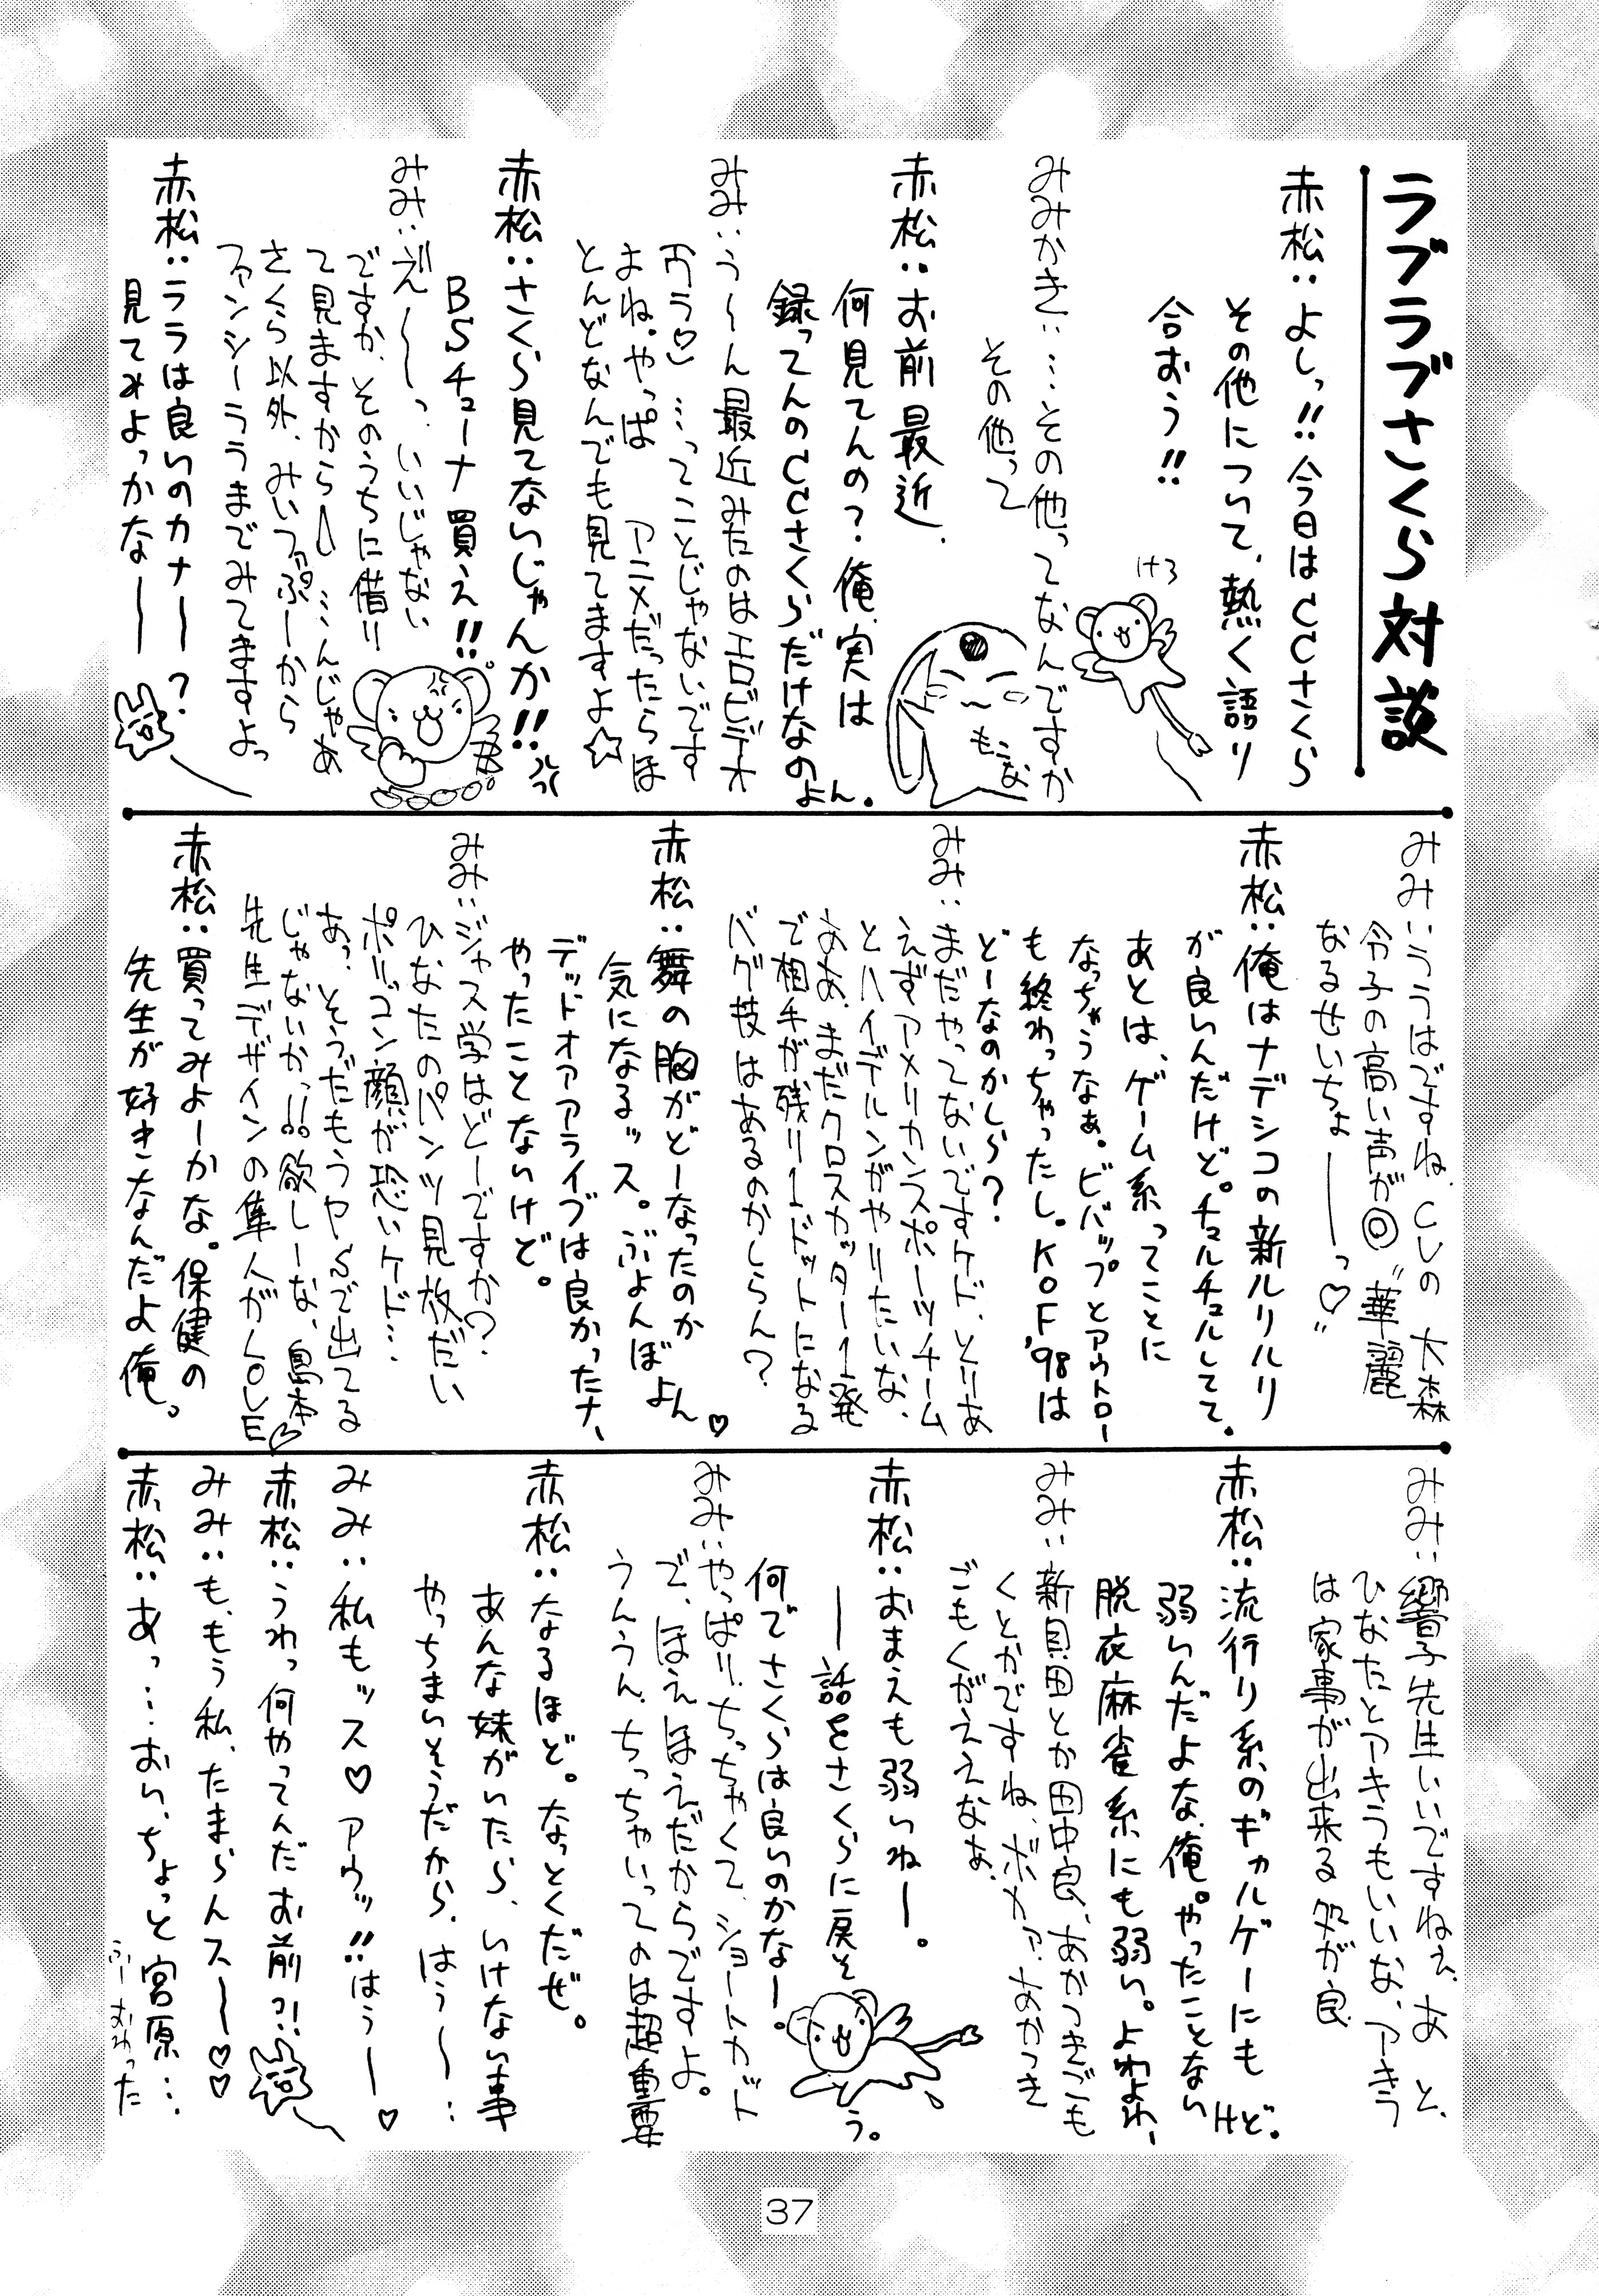 ラブラブさくら対説
赤松：よしっ!!今日はCCさくら
その他について、熱く語り
合おう!!
みみかき：…その他ってなんですか
その他って
赤松：お前最近、
何見てんの？俺、実は
録ってんのCCさくらだけなのよん。
みみ：う～ん最近みたのはエロビデオ
…ってことじゃないです
よね。やっぱ アニメだったらほ
とんどなんでも見てますよ☆
赤松：さくら見てないじゃんか!!
BSチューナ買え!!
みみ：え～っ、いいじゃない
ですか、そのうちに借り
て見ますから …んじゃあ
さくら以外、みいファぷーから
ファンシーララまでみてますよっ
赤松：ララは良いのカナー？
見てみよっかなー
けろ
もこな
みみ：ララはですね、CVの 大森
令子の高い声が◎"華麗
なるせいちょーっ♡"
赤松：俺はナデシコの新ルリルリ
が良いんだけど。チュルチュルしてて。
あとは、ゲーム系ってことに
なっちゃうなぁ。ビバップとアウトロー
も終わっちゃったし。KOF'98は
どーなのかしら？
みみ：まだやってないですケド、とりあ
えずアメリカンスポーツチーム
とハイデルンがやりたいな、
ああ、まだクロスカッター1発
で相手が残り1ドットになる
バグ技はあるのかしらん？
赤松：舞の胸がどーなったのか
気になるッス。ぷよんぼよん♡
デッドオアアライブは良かったナ、
やったことないけど。
みみ：ジャス学はどーですか？
ひなたのパンツ見放だい
ポリゴン顔が恐いケド…
あっ、そうだもうPSで出てる
じゃないかっ!!欲しーな、島本
先生デザインの隼人がLOVE♡
赤松：買ってみよーかな。保健の
先生が好きなんだよ俺。
みみ：響子先生いいですねぇ、あと、
ひなたとアキラもいいな、アキラ
は家事が出来る処が良
赤松：流行り系のギャルゲーにも
弱いんだよな、俺。やったことないけど。
脱衣麻雀系にも弱い。よわよわー
みみ：新貝田とか田中良、あかつきごも
くとかですね、ボカァ、あかつき
ごもくがええなぁ
赤松：おまえも弱いねー。
ー話をさくらに戻そう。
何でさくらは良いのかなー。
みみ：やっぱり、ちっちゃくて、ショートカット
で、ほえほえだからですよ。
うんうん、ちっちゃいってのは超重要
赤松：なるほど。なっとくだぜ。
あんな妹がいたら、いけない事
やっちまいそうだから、はう～…
みみ：私もッス♡アウッ!!はうー♡
赤松：うわっ何やってんだお前?!
みみ：も、もう私、たまらんスー♡♡
赤松：あっ…おい、ちょっと宮原…
ふーおわった
37